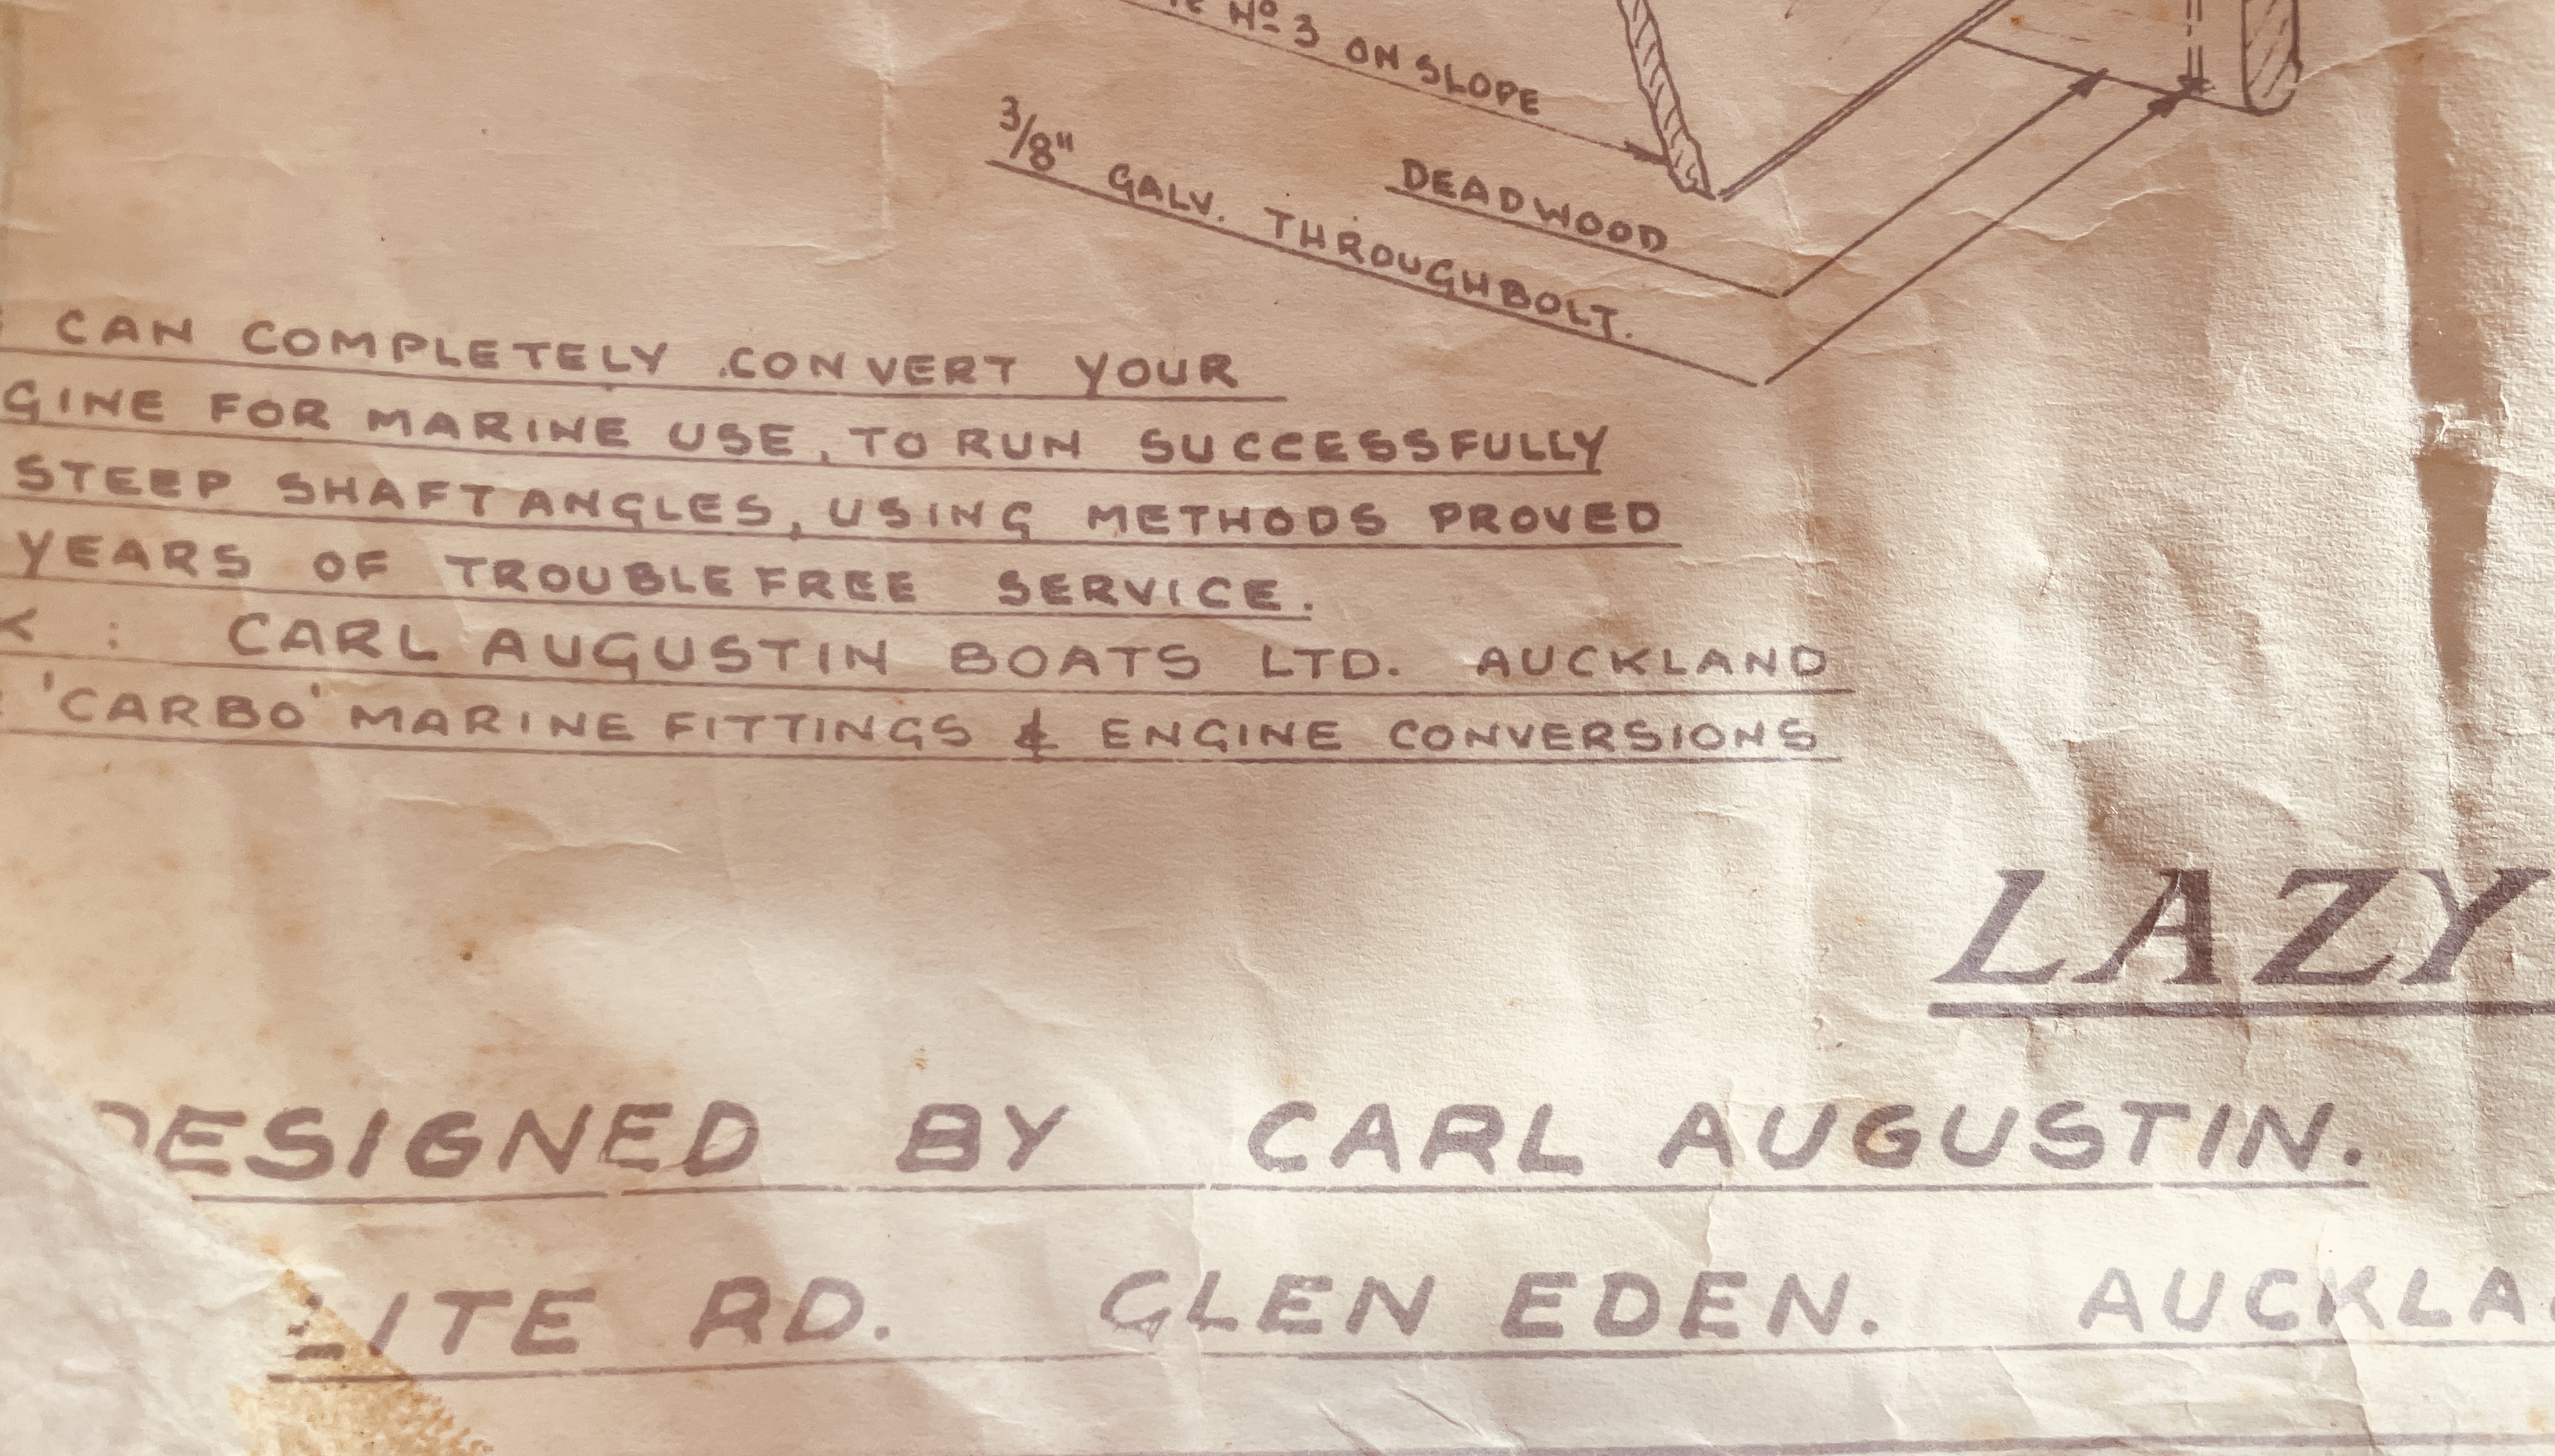 Nº 3 ON SLOPE
DEADWOOD
3/8" GALV. THROUGHBOLT.
CAN COMPLETELY CONVERT YOUR
GINE FOR MARINE USE, TO RUN SUCCESSFULLY
STEEP SHAFT ANGLES, USING METHODS PROVED
YEARS OF TROUBLE FREE SERVICE.
: CARL AUGUSTIN BOATS LTD. AUCKLAND
'CARBO' MARINE FITTINGS & ENGINE CONVERSIONS
LAZY
DESIGNED BY CARL AUGUSTIN.
ITE RD. GLEN EDEN. AUCKLA